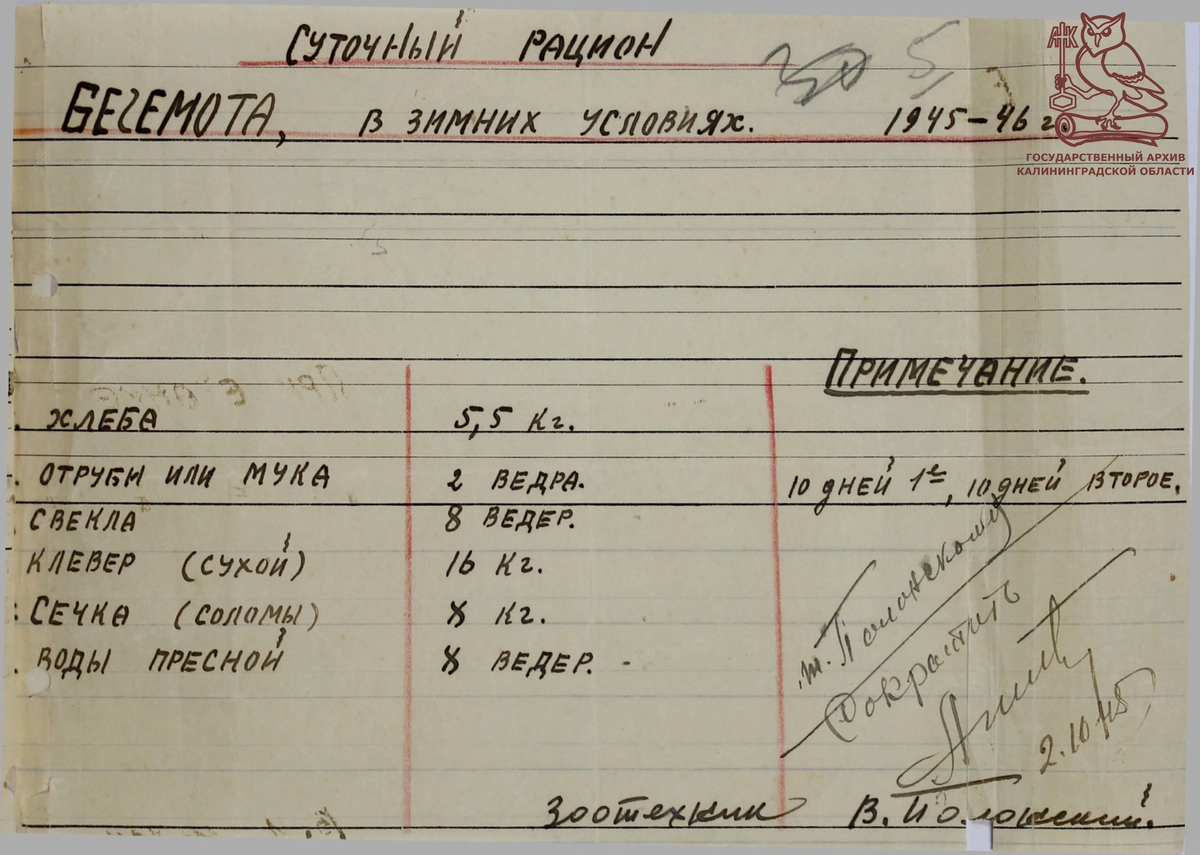 СУТОЧНЫЙ РАЦИОН
5
БЕГЕМОТА, В ЗИМНИХ УСЛОВИЯХ. 1945-46 г.
ГОСУДАРСТВЕННЫЙ АРХИВ
КАЛИНИНГРАДСКОЙ ОБЛАСТИ
ПРИМЕЧАНИЕ.
ХЛЕБА 5,5 КГ.
ОТРУБИ ИЛИ МУКА 2 ВЕДРА. 10 ДНЕЙ 1е, 10 ДНЕЙ ВТОРОЕ.
СВЕКЛА 8 ВЕДЕР.
КЛЕВЕР (СУХОЙ) 16 КГ.
СЕЧКА (СОЛОМЫ) 8 КГ.
ВОДЫ ПРЕСНОЙ 8 ВЕДЕР.
т. Полонскому
Сократить
2.10.45
Зоотехник В. Полонский.